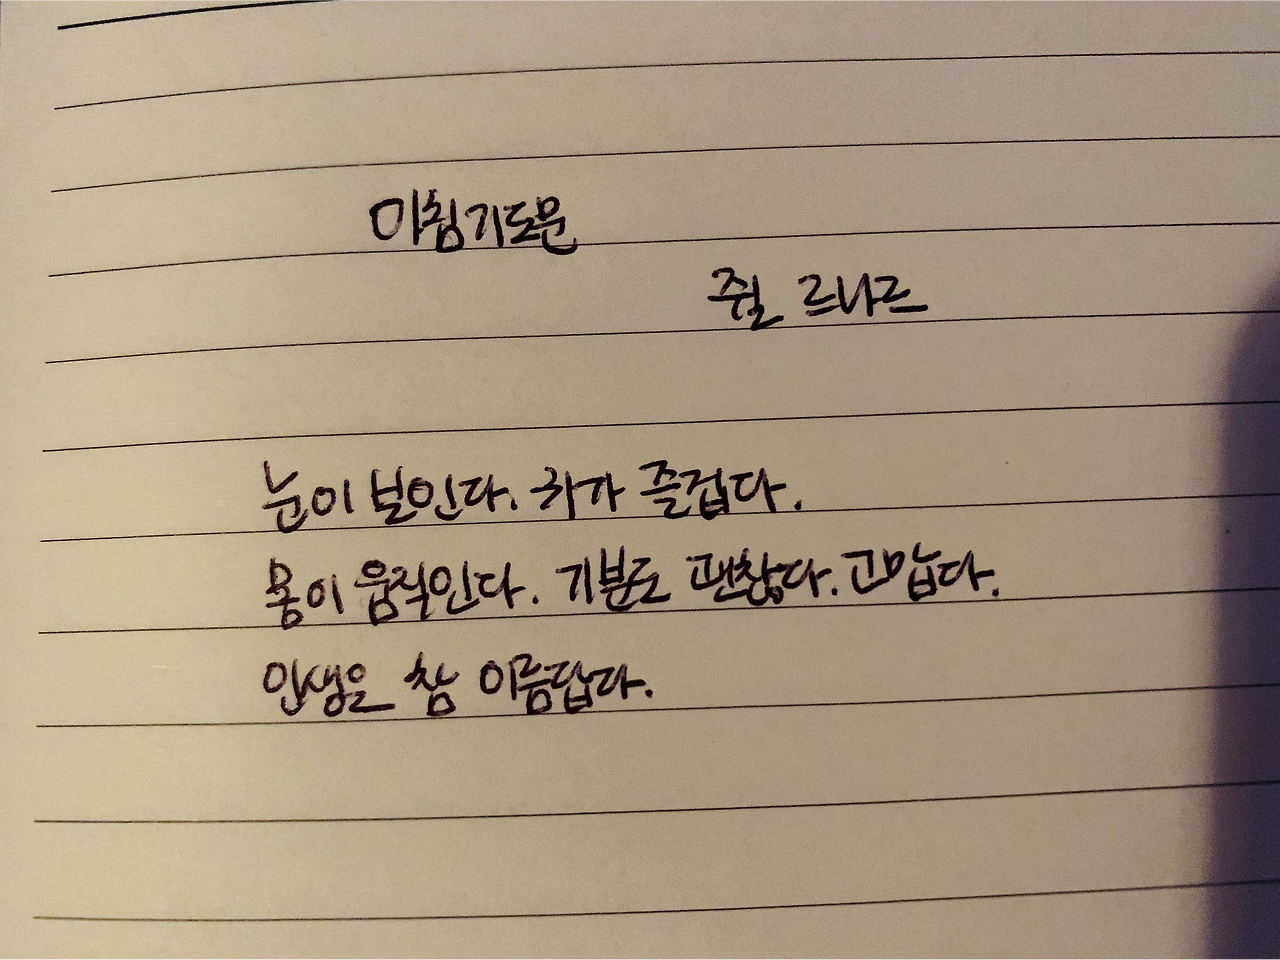 아침기도문
쥘 르나르
눈이 보인다. 귀가 즐겁다.
몸이 움직인다. 기분도 괜찮다. 고맙다.
인생은 참 아름답다.